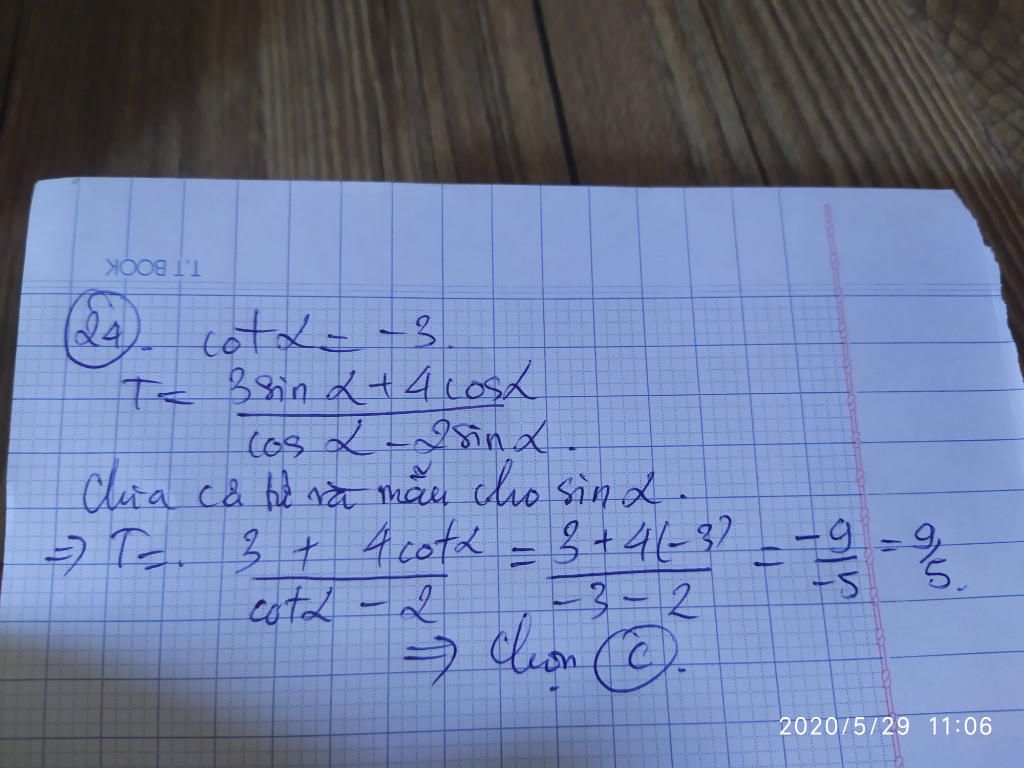 T.T BOOK
24. cot α = -3.
T = (3 sin α + 4 cos α) / (cos α - 2 sin α).
Chia cả tử và mẫu cho sin α.
=> T = (3 + 4 cot α) / (cot α - 2) = (3 + 4(-3)) / (-3 - 2) = -9/-5 = 9/5.
=> Chọn C.
2020/5/29 11:06